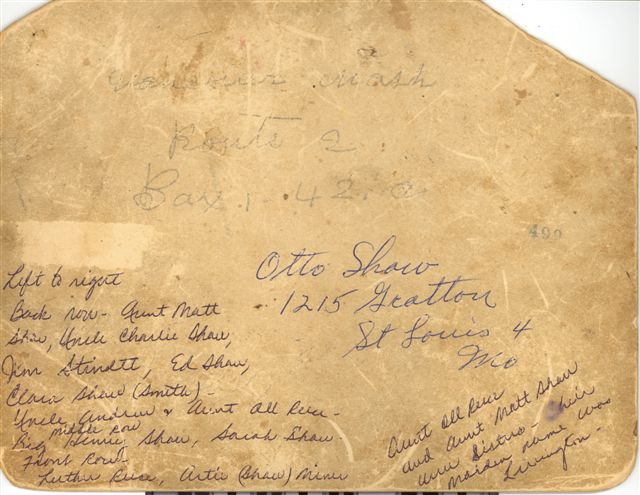 Vancouver Wash
Route 2
Box 1421 a
490
Otto Shaw
1215 Gratton
St Louis 4
Mo
Left to right
Back row - Aunt Matt
Shaw, Uncle Charlie Shaw,
Jim Stindtt, Ed Shaw,
Clara Shaw (Smith) -
Uncle Andrew & Aunt All Rice -
Middle Row
Bennie Shaw, Sarah Shaw -
Front Row -
Luther Rice, Artie (Shaw) Miner
Aunt All Rice
and Aunt Matt Shaw
were Sistro - their
maiden name was
Livington -